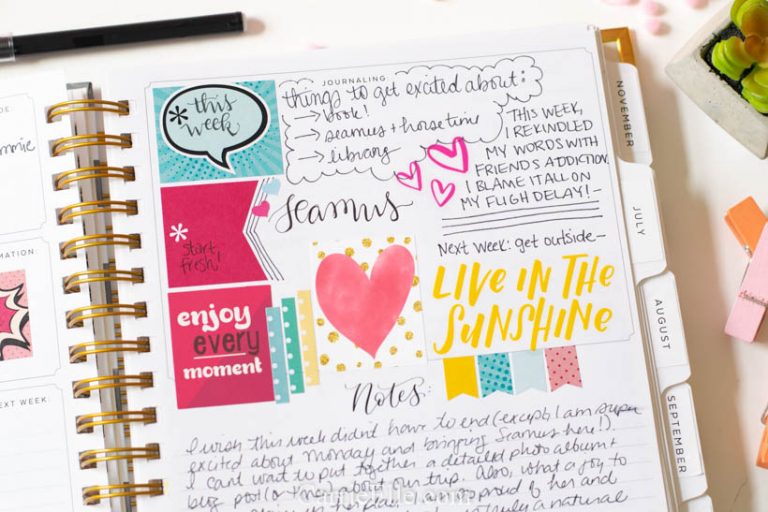 JOURNALING
* this
week
things to get excited about:
→ book!
→ seamus + horse time
→ library
THIS WEEK,
I REKINDLED
MY WORDS WITH
FRIENDS ADDICTION.
I BLAME IT ALL ON
MY FLIGH DELAY! -
* start
fresh!
seamus
Next Week: get outside -
LIVE IN THE
SUNSHINE
enjoy
every
moment
Notes:
I wish this week didn't have to end (except I am super
excited about monday and bringing Seamus here!).
I can't want to put together a detailed photo album +
blog post about our trip. Also, what a joy to
proud of her and
truly a natural
NOVEMBER
JULY
AUGUST
SEPTEMBER
MATION
EXT WEEK: